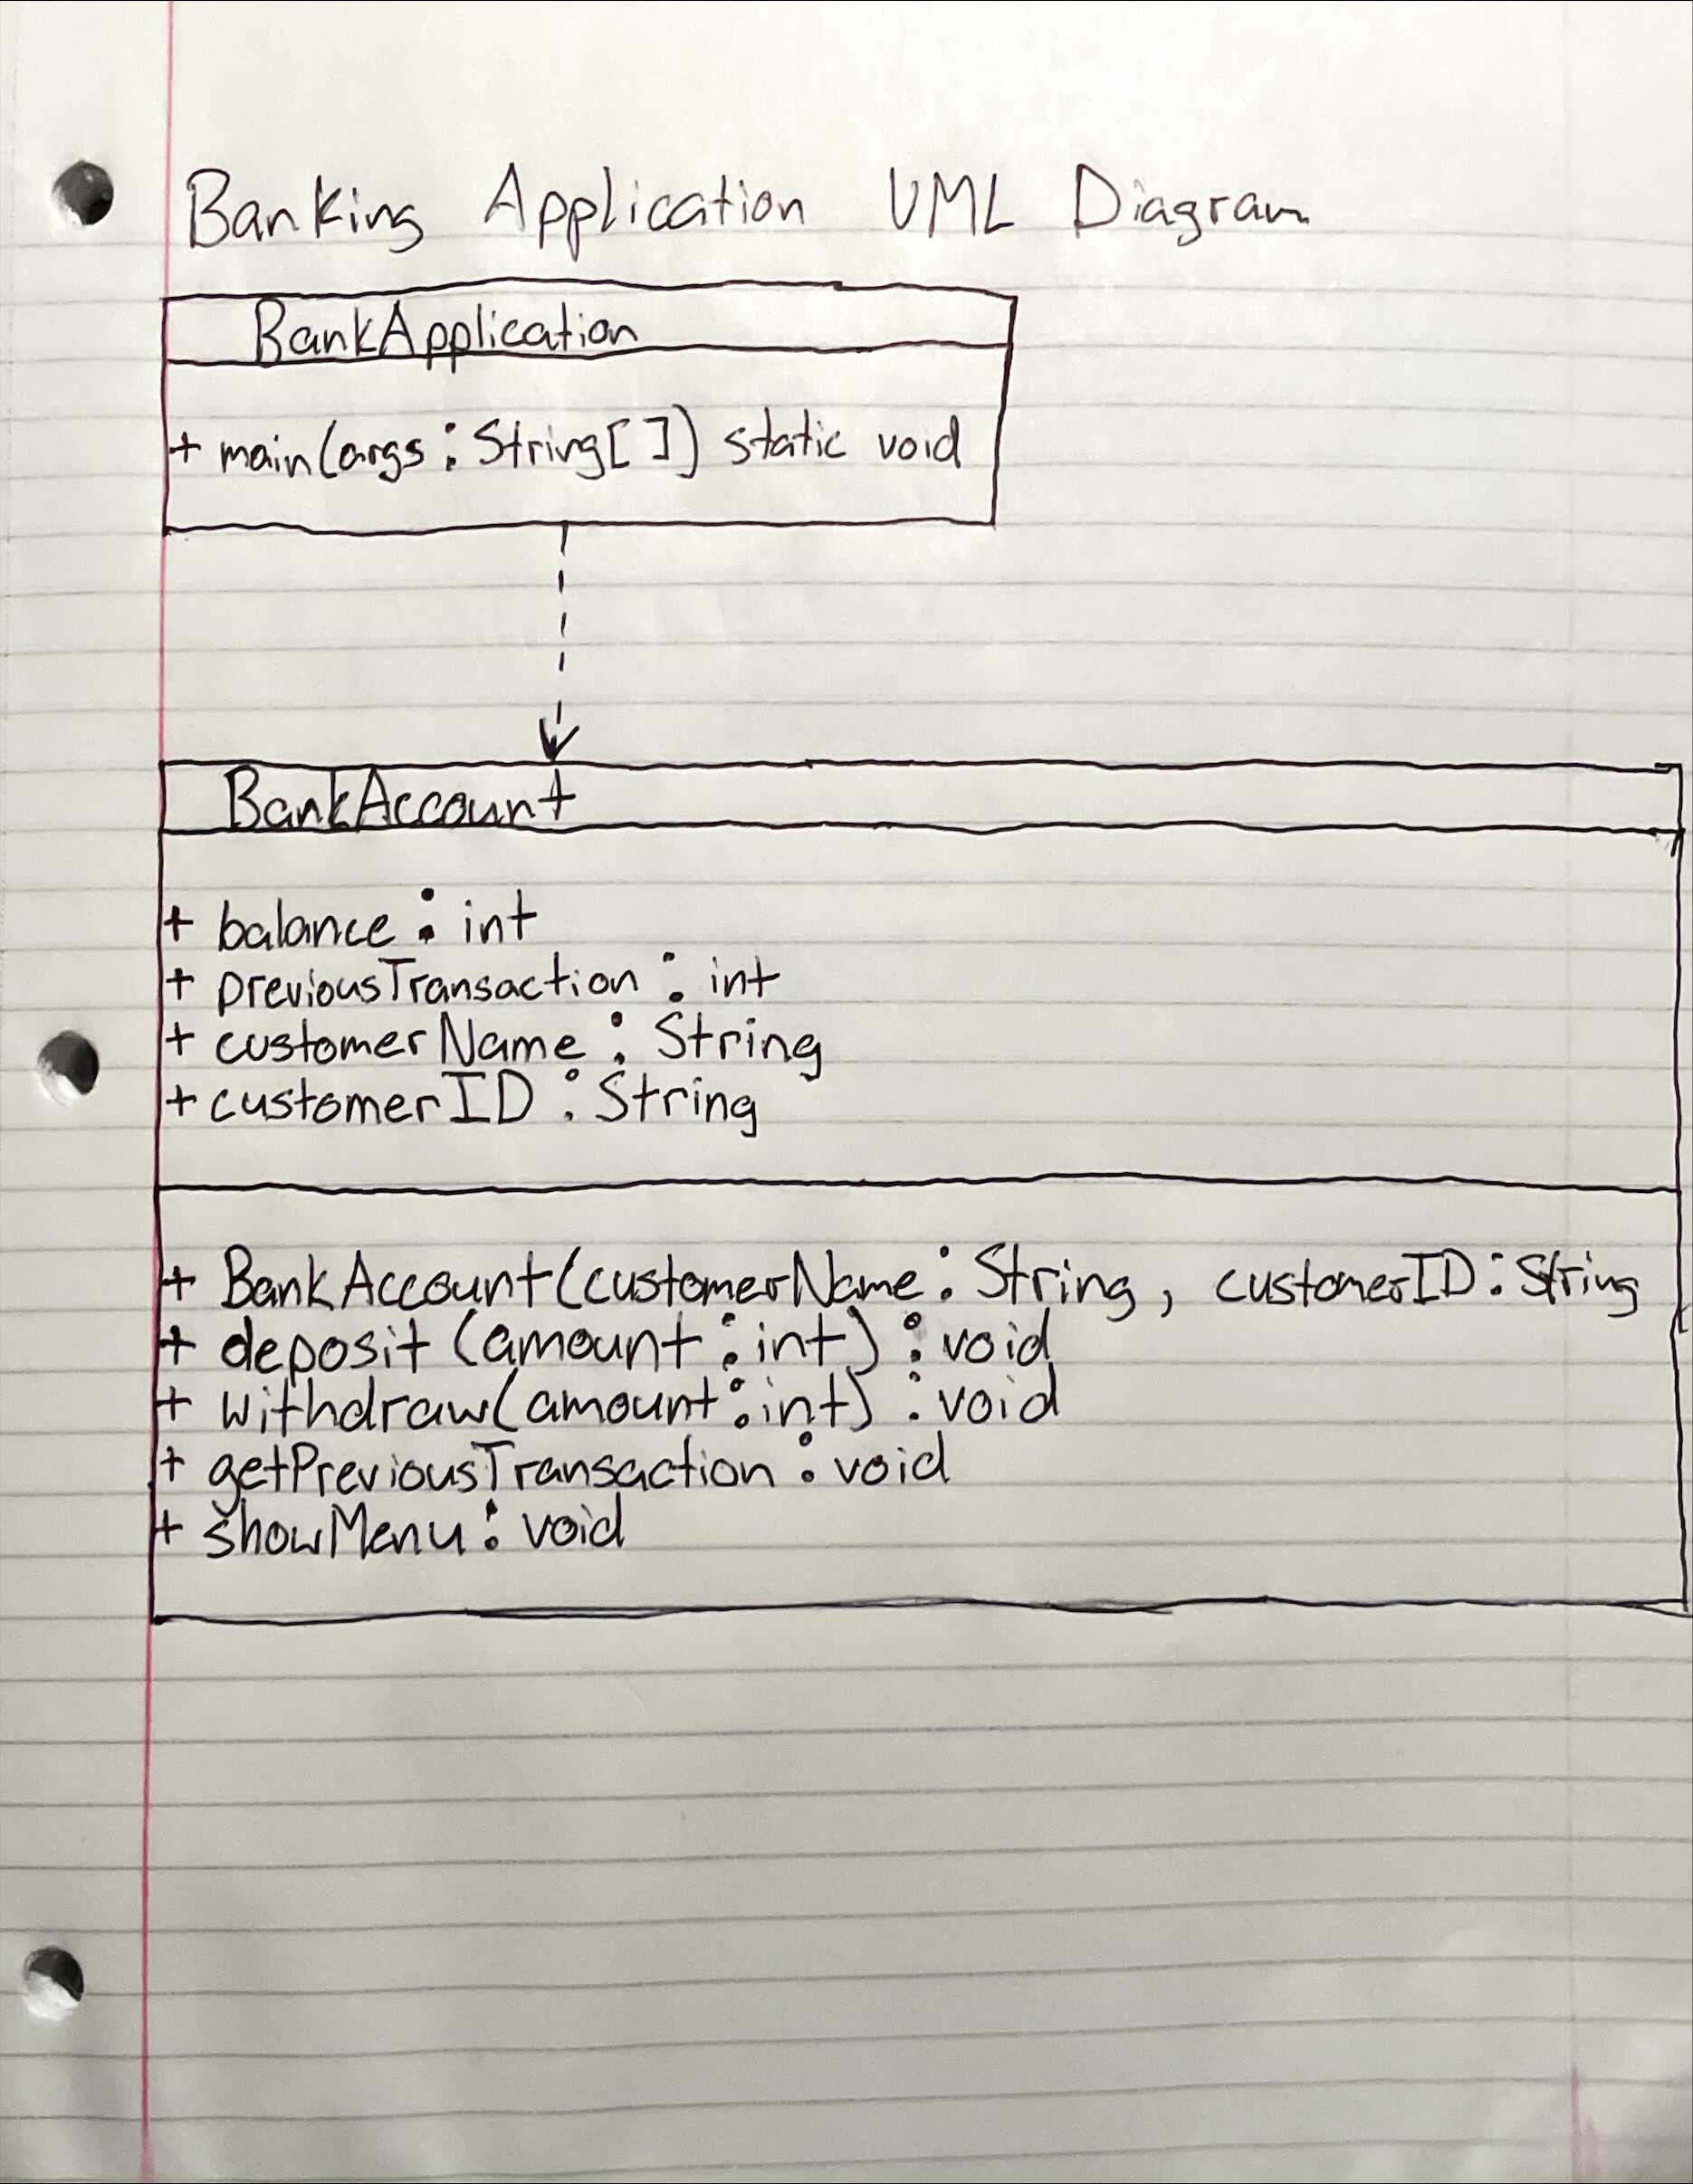 Banking Application UML Diagram
BankApplication
+ main(args : String[ ]) static void
BankAccount
+ balance : int
+ previousTransaction : int
+ customerName : String
+ customerID : String
+ BankAccount(customerName : String, customerID : String
+ deposit (amount : int) : void
+ withdraw(amount : int) : void
+ getPreviousTransaction : void
+ showMenu : void